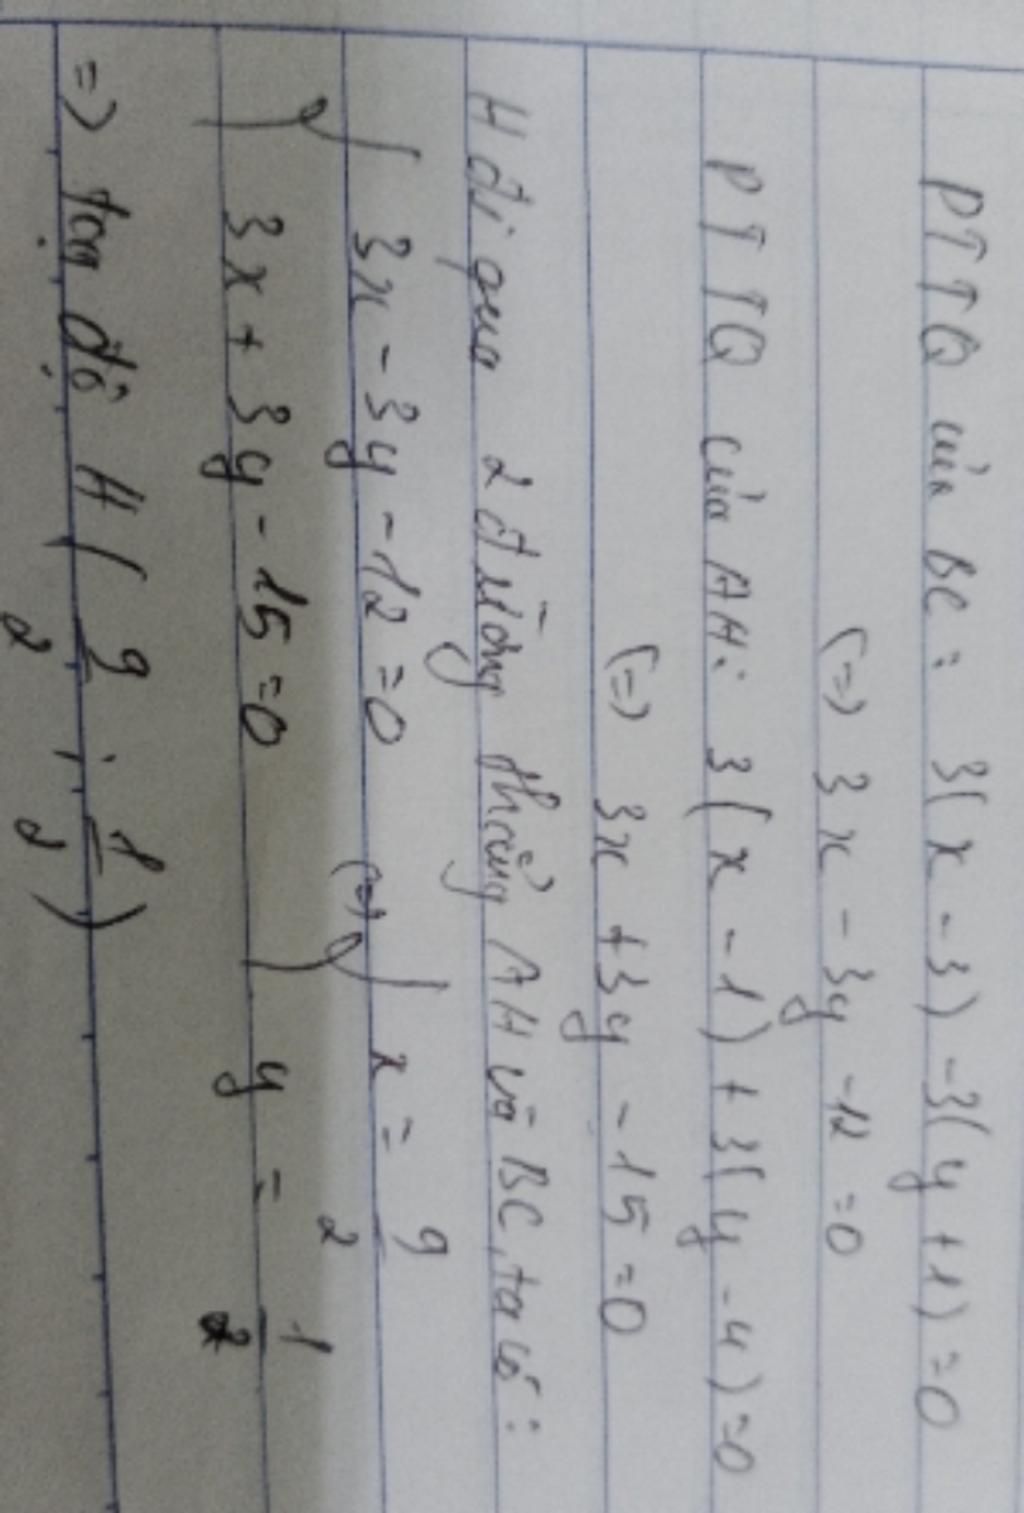 PTTQ của BC: 3(x-3)-3(y+1)=0
(=) 3x-3y-12=0
PTTQ của AH: 3(x-1)+3(y-4)=0
(=) 3x+3y-15=0
H đi qua 2 đường thẳng AH và BC, ta có:
{ 3x-3y-12=0 (=) { x = 9/2
3x+3y-15=0 y = 1/2
=) tọa độ H ( 9/2 ; 1/2 )